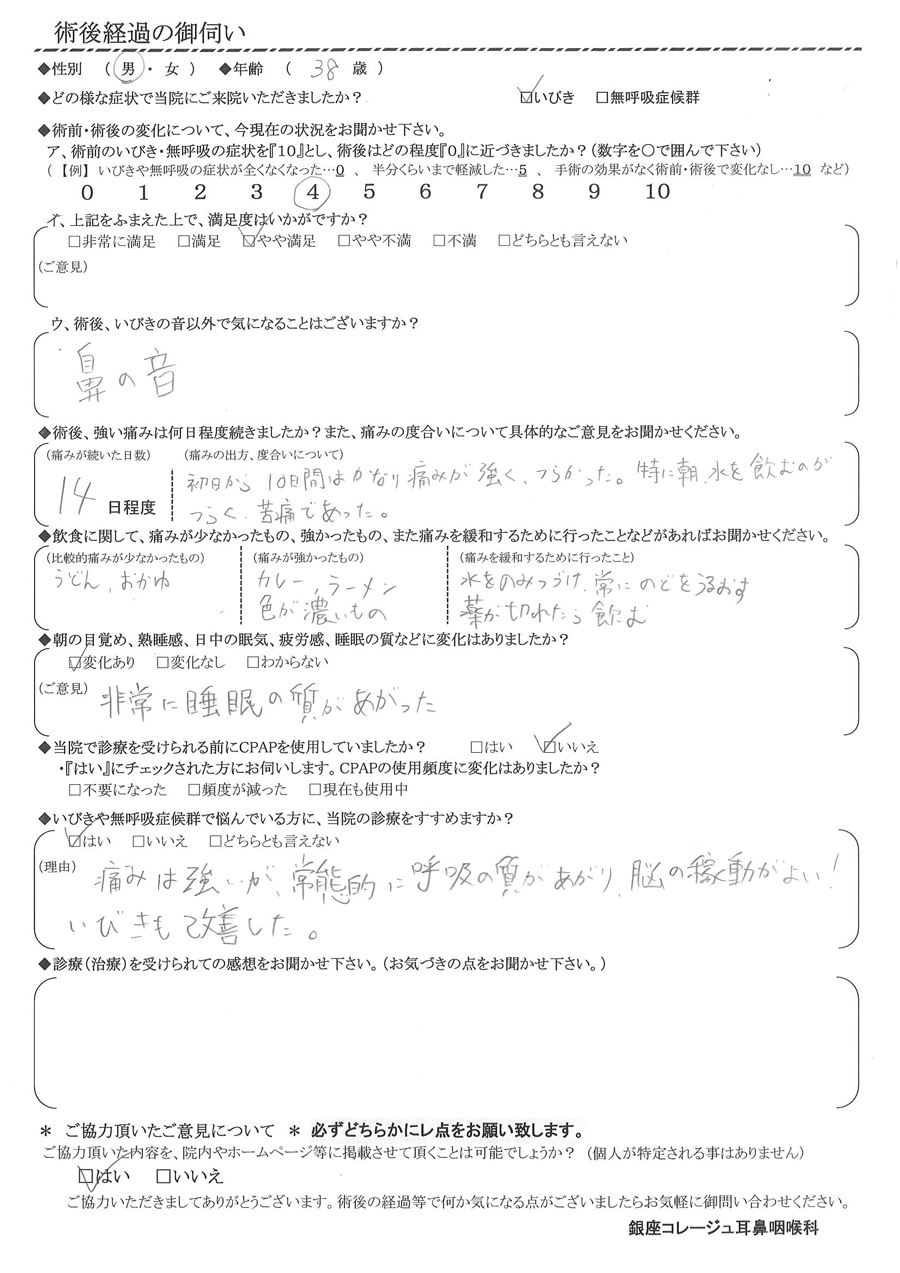 術後経過の御伺い
◆性別 ( 男 ・ 女 ) ◆年齢 ( 38 歳 )
◆どの様な症状で当院にご来院いただきましたか? ☑いびき □無呼吸症候群
◆術前・術後の変化について、今現在の状況をお聞かせ下さい。
ア、術前のいびき・無呼吸の症状を『10』とし、術後はどの程度『0』に近づきましたか?(数字を○で囲んで下さい)
(【例】 いびきや無呼吸の症状が全くなくなった…0 、 半分くらいまで軽減した…5 、 手術の効果がなく術前・術後で変化なし…10 など)
0 1 2 3 4 5 6 7 8 9 10
イ、上記をふまえた上で、満足度はいかがですか?
□非常に満足 □満足 ☑やや満足 □やや不満 □不満 □どちらとも言えない
(ご意見)
ウ、術後、いびきの音以外で気になることはございますか?
鼻の音
◆術後、強い痛みは何日程度続きましたか?また、痛みの度合いについて具体的なご意見をお聞かせください。
(痛みが続いた日数) (痛みの出方、度合いについて)
14 日程度 初日から10日間はかなり痛みが強く、つらかった。特に朝、水を飲むのが
つらく、苦痛であった。
◆飲食に関して、痛みが少なかったもの、強かったもの、また痛みを緩和するために行ったことなどがあればお聞かせください。
(比較的痛みが少なかったもの) (痛みが強かったもの) (痛みを緩和するために行ったこと)
うどん、おかゆ カレー、ラーメン 水をのみつづけ、常にのどをうるおす
色が濃いもの 薬が切れたら飲む
◆朝の目覚め、熟睡感、日中の眠気、疲労感、睡眠の質などに変化はありましたか?
☑変化あり □変化なし □わからない
(ご意見) 非常に睡眠の質があがった
◆当院で診療を受けられる前にCPAPを使用していましたか? □はい ☑いいえ
・『はい』にチェックされた方にお伺いします。CPAPの使用頻度に変化はありましたか?
□不要になった □頻度が減った □現在も使用中
◆いびきや無呼吸症候群で悩んでいる方に、当院の診療をすすめますか?
☑はい □いいえ □どちらとも言えない
(理由) 痛みは強いが、常態的に呼吸の質があがり、脳の稼動がよい!
いびきも改善した。
◆診療(治療)を受けられての感想をお聞かせ下さい。(お気づきの点をお聞かせ下さい。)
＊ ご協力頂いたご意見について ＊ 必ずどちらかにレ点をお願い致します。
ご協力頂いた内容を、院内やホームページ等に掲載させて頂くことは可能でしょうか? (個人が特定される事はありません)
☑はい □いいえ
ご協力いただきましてありがとうございます。術後の経過等で何か気になる点がございましたらお気軽に御問い合わせください。
銀座コレージュ耳鼻咽喉科